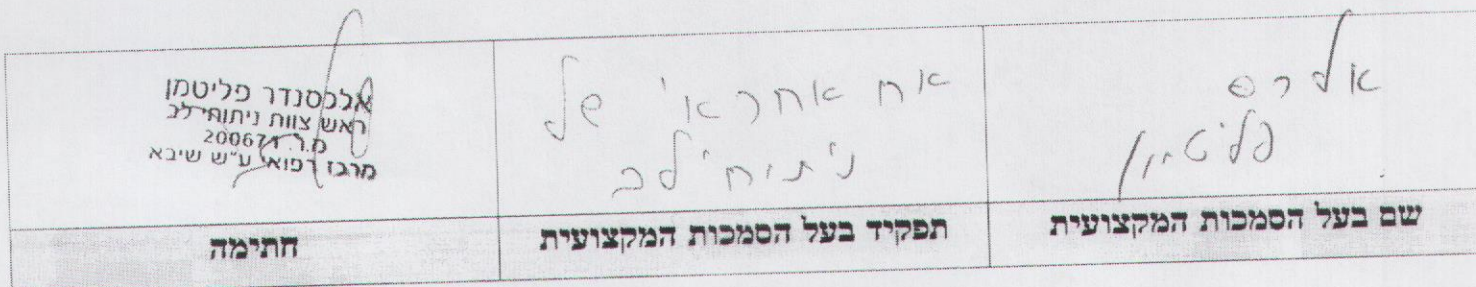 אלכס
פליטמן
אח אחראי של
ניתוחי לב
אלכסנדר פליטמן
ראש צוות ניתוחי לב
מ.ר. 200671
מרכז רפואי ע״ש שיבא
שם בעל הסמכות המקצועית
תפקיד בעל הסמכות המקצועית
חתימה